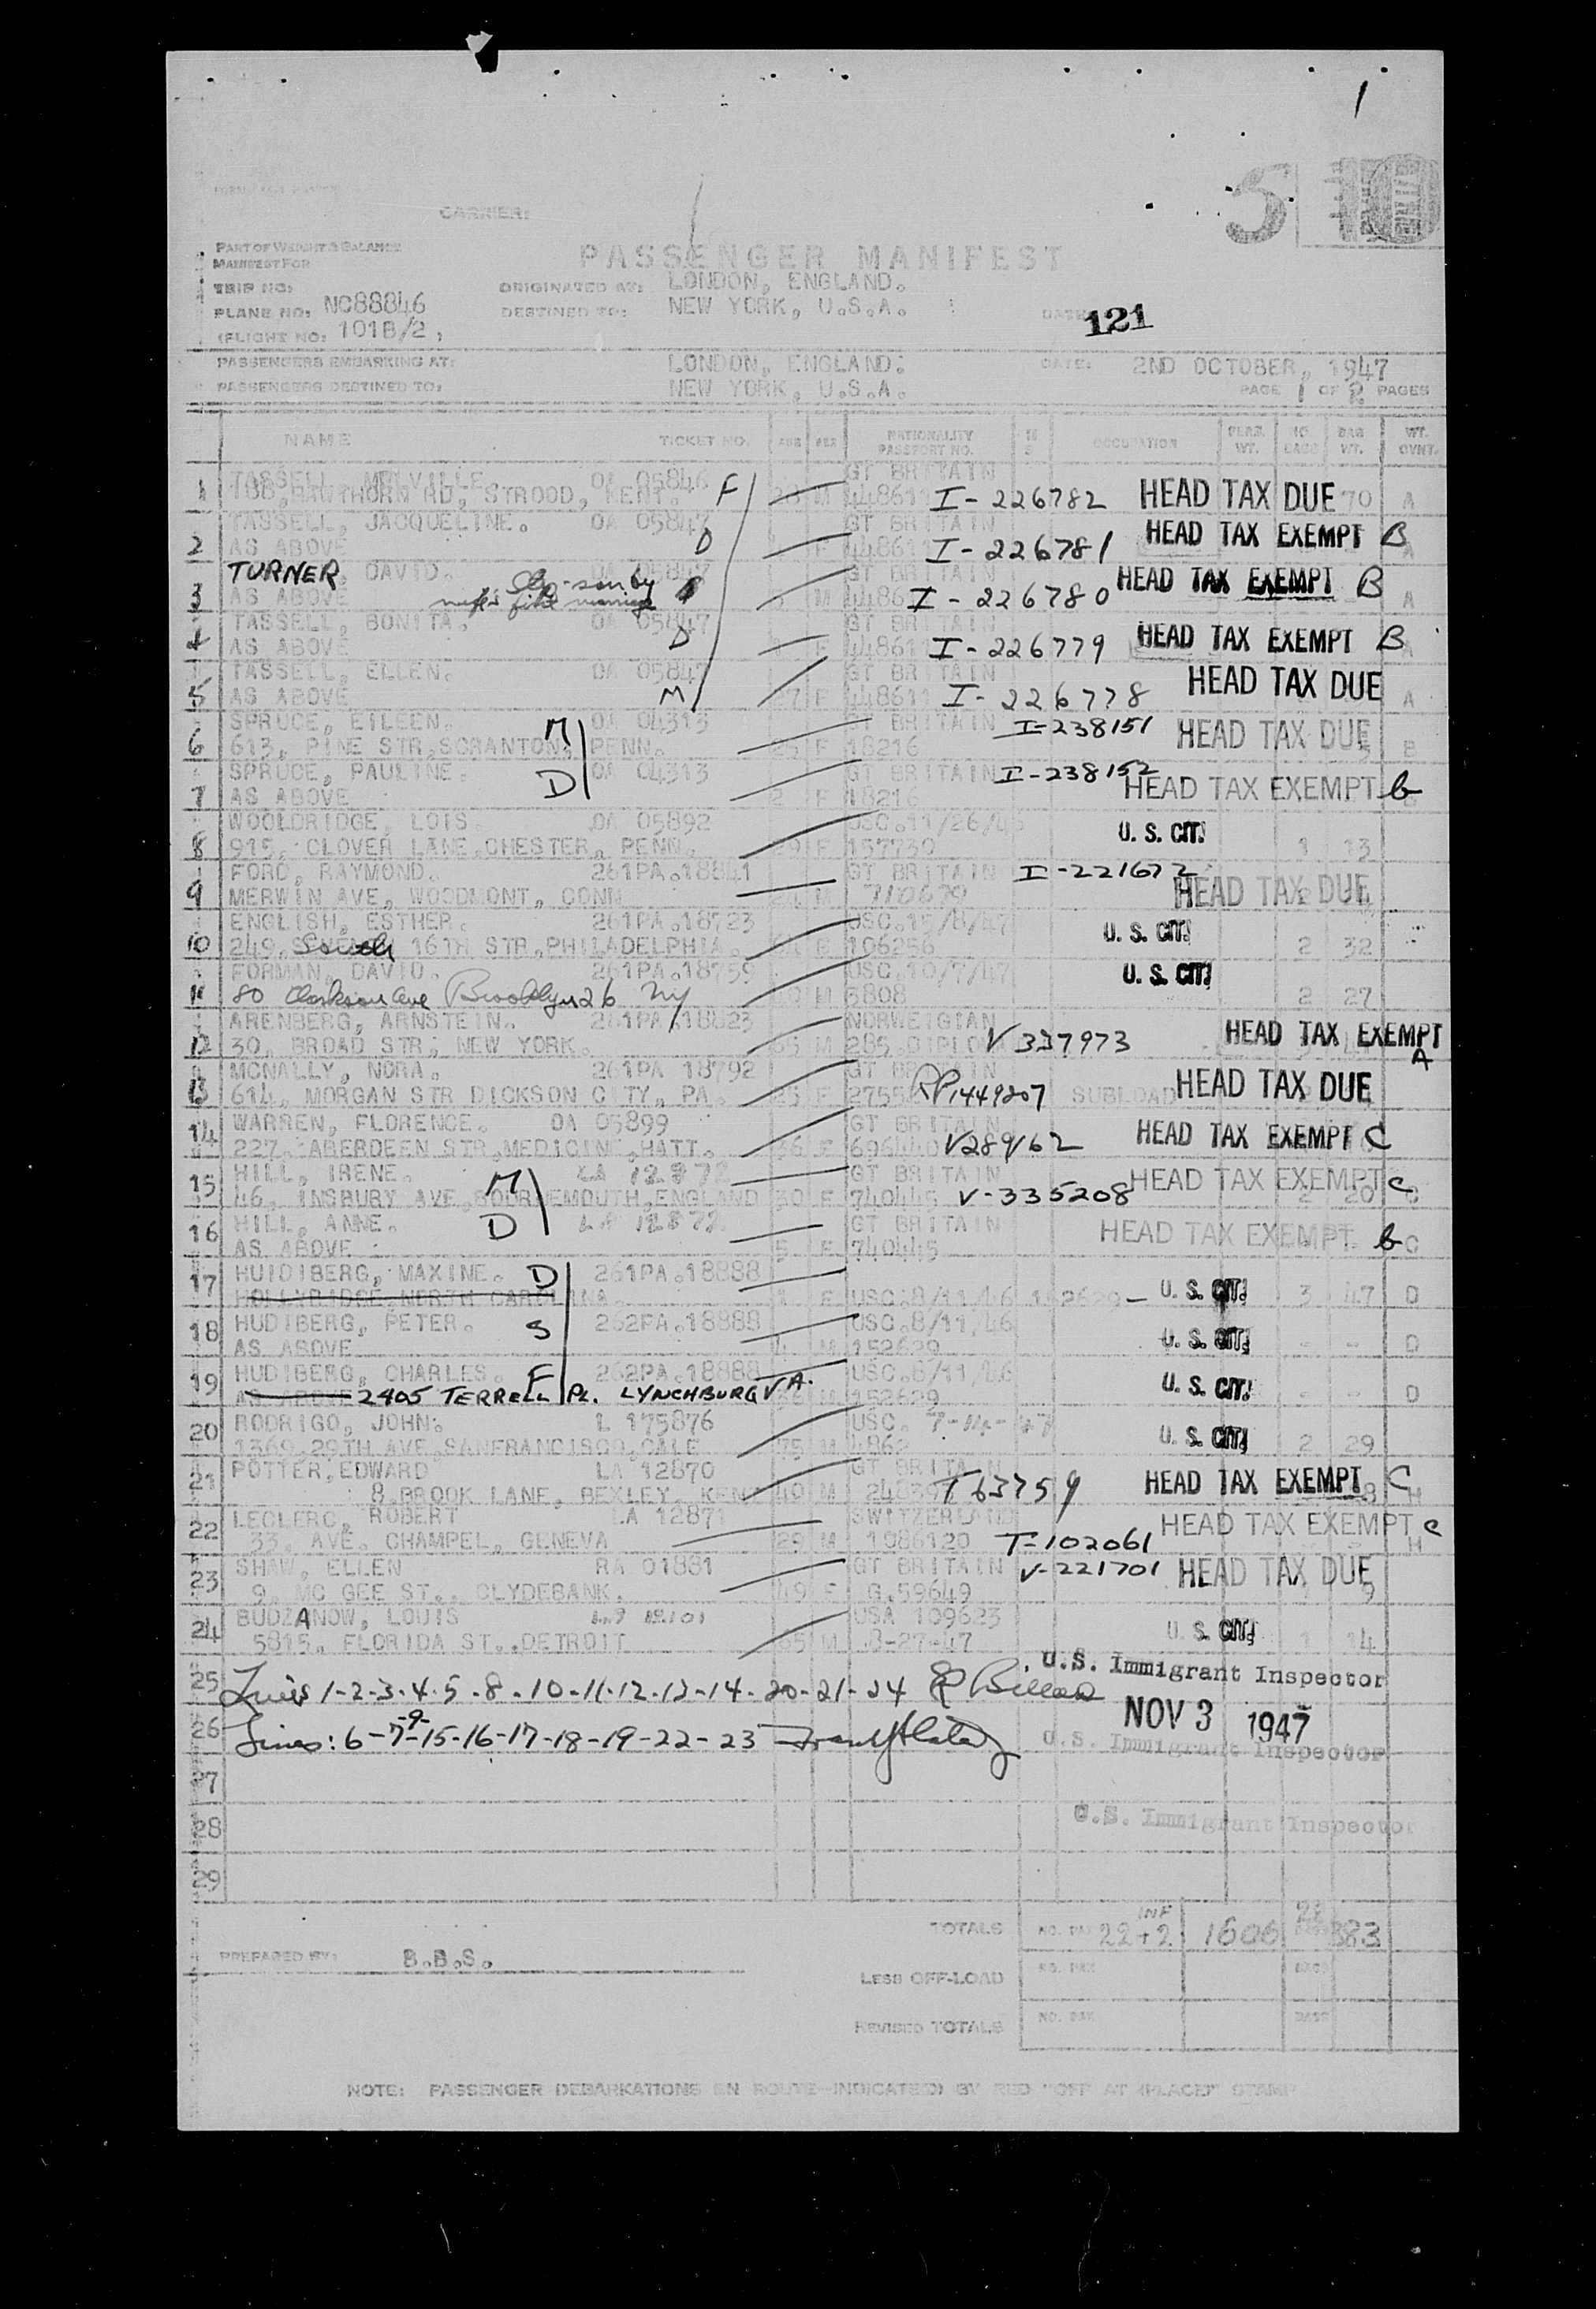 1
5 10
CARRIER:
PART OF WEIGHT & BALANCE
MANIFEST FOR
PASSENGER MANIFEST
TRIP NO:
ORIGINATED AT: LONDON, ENGLAND.
PLANE NO: NC88846
DESTINED TO: NEW YORK, U.S.A.
121
(FLIGHT NO: 101B/2,
PASSENGERS EMBARKING AT: LONDON, ENGLAND: DATE: 2ND OCTOBER, 1947
PASSENGERS DESTINED TO: NEW YORK, U.S.A. PAGE 1 OF 2 PAGES
NAME TICKET NO. AGE SEX NATIONALITY PASSPORT NO. OCCUPATION PERS. WT. NO. BAGS BAG WT. WT. OVNT.
TASSELL, MELVILLE. OA 05846 GT BRITAIN
1 HAWTHORN RD, STROOD, KENT. F M 44861 I-226782 HEAD TAX DUE 70 A
TASSELL, JACQUELINE. OA 05847 GT BRITAIN
2 AS ABOVE D F 44861 I-226781 HEAD TAX EXEMPT B A
TURNER, DAVID. OA 05847 Step-son by GT BRITAIN
3 AS ABOVE M 4486 I-226780 HEAD TAX EXEMPT B A
TASSELL, BONITA. OA 05847 GT BRITAIN
4 AS ABOVE D F 44861 I-226779 HEAD TAX EXEMPT B A
TASSELL, ELLEN. OA 05847 GT BRITAIN
5 AS ABOVE M 27 F 448611 I-226778 HEAD TAX DUE A
SPRUCE, EILEEN. M OA 04313 GT BRITAIN I-238151
6 613, PINE STR, SCRANTON, PENN. 25 F 18216 HEAD TAX DUE B
SPRUCE, PAULINE. D OA 04313 GT BRITAIN I-238152
7 AS ABOVE 2 F 18216 HEAD TAX EXEMPT b
WOOLDRIDGE, LOIS. OA 05892 USC.11/26/46
8 915, CLOVER LANE, CHESTER, PENN. 29 F 157730 U. S. CIT. 1 13
FORD, RAYMOND. 261PA.18841 GT BRITAIN I-221672
9 MERWIN AVE, WOODMONT, CONN 24 M 710670 HEAD TAX DUE
ENGLISH, ESTHER. 261PA.18723 USC.15/8/47
10 249, South 16TH STR, PHILADELPHIA. F 106256 U. S. CIT. 2 32
FORMAN, DAVID. 261PA.18759 USC.10/7/47
11 80 Clarkson Ave Brooklyn 26 NY M 5808 U. S. CIT. 2 27
ARENBERG, ARNSTEIN. 261PA.18823 NORWEIGIAN
12 30, BROAD STR, NEW YORK. 65 M 285 DIPLO V 337973 HEAD TAX EXEMPT A
MCNALLY, NORA. 261PA 18792 GT BRITAIN
13 614, MORGAN STR DICKSON CITY, PA. 25 F 2755 RP1449207 SUBLOAD HEAD TAX DUE
WARREN, FLORENCE. OA 05899 GT BRITAIN
14 227, ABERDEEN STR, MEDICINE, HATT. 36 F 696440 V289162 HEAD TAX EXEMPT C
HILL, IRENE. M LA 12872 GT BRITAIN
15 46, INSBURY AVE, BOURNEMOUTH, ENGLAND 30 F 740445 V-335208 HEAD TAX EXEMPT C 2 20
16 HILL, ANNE. D LA 12872 GT BRITAIN HEAD TAX EXEMPT b
AS ABOVE 5 F 740445
17 HUIDIBERG, MAXINE. D 261PA.18888
HOLLYRIDGE, NORTH CAROLINA. F USC.8/11/46 152629 - U. S. CIT. 3 47 D
18 HUDIBERG, PETER. S 262PA.18888 USC.8/11/46
AS ABOVE 4 M 152629 U. S. CIT. - - D
19 HUDIBERG, CHARLES. F 262PA.18888 USC.8/11/46
AS ABOVE 2405 TERRELL PL. LYNCHBURG VA. M 152629 U. S. CIT. - - D
20 RODRIGO, JOHN. L 175876 USC. 7-14-47
1369, 29TH AVE, SANFRANCISCO, CALE 75 M 4862 U. S. CIT. 2 29
21 POTTER, EDWARD LA 12870 GT BRITAIN
8, BROOK LANE, BEXLEY, KENT 40 M T 63759 HEAD TAX EXEMPT C H
22 LECLERC, ROBERT LA 12871 SWITZERLAND HEAD TAX EXEMPT c
33, AVE. CHAMPEL, GENEVA 29 M 1086120 T-102061 H
23 SHAW, ELLEN RA 01881 GT BRITAIN V-221701 HEAD TAX DUE
9, MC GEE ST., CLYDEBANK. 49 F G.59649
24 BUDZANOW, LOUIS USA 109623
5815, FLORIDA ST., DETROIT 65 M 8-27-47 U. S. CIT. 1 14
25 Lines 1-2-3-4-5-8-10-11-12-13-14-20-21-24 U.S. Immigrant Inspector
NOV 3 1947
26 Lines: 6-7-9-15-16-17-18-19-22-23 U.S. Immigrant Inspector
27
28 U.S. Immigrant Inspector
29
TOTALS NO. PAX 22+2 INF 1606 383
PREPARED BY: B.B.S.
LESS OFF-LOAD NO. PAX BAGS
REVISED TOTALS NO. PAX BAGS
NOTE: PASSENGER DEBARKATIONS EN ROUTE INDICATED BY RED "OFF AT (PLACE)" STAMP